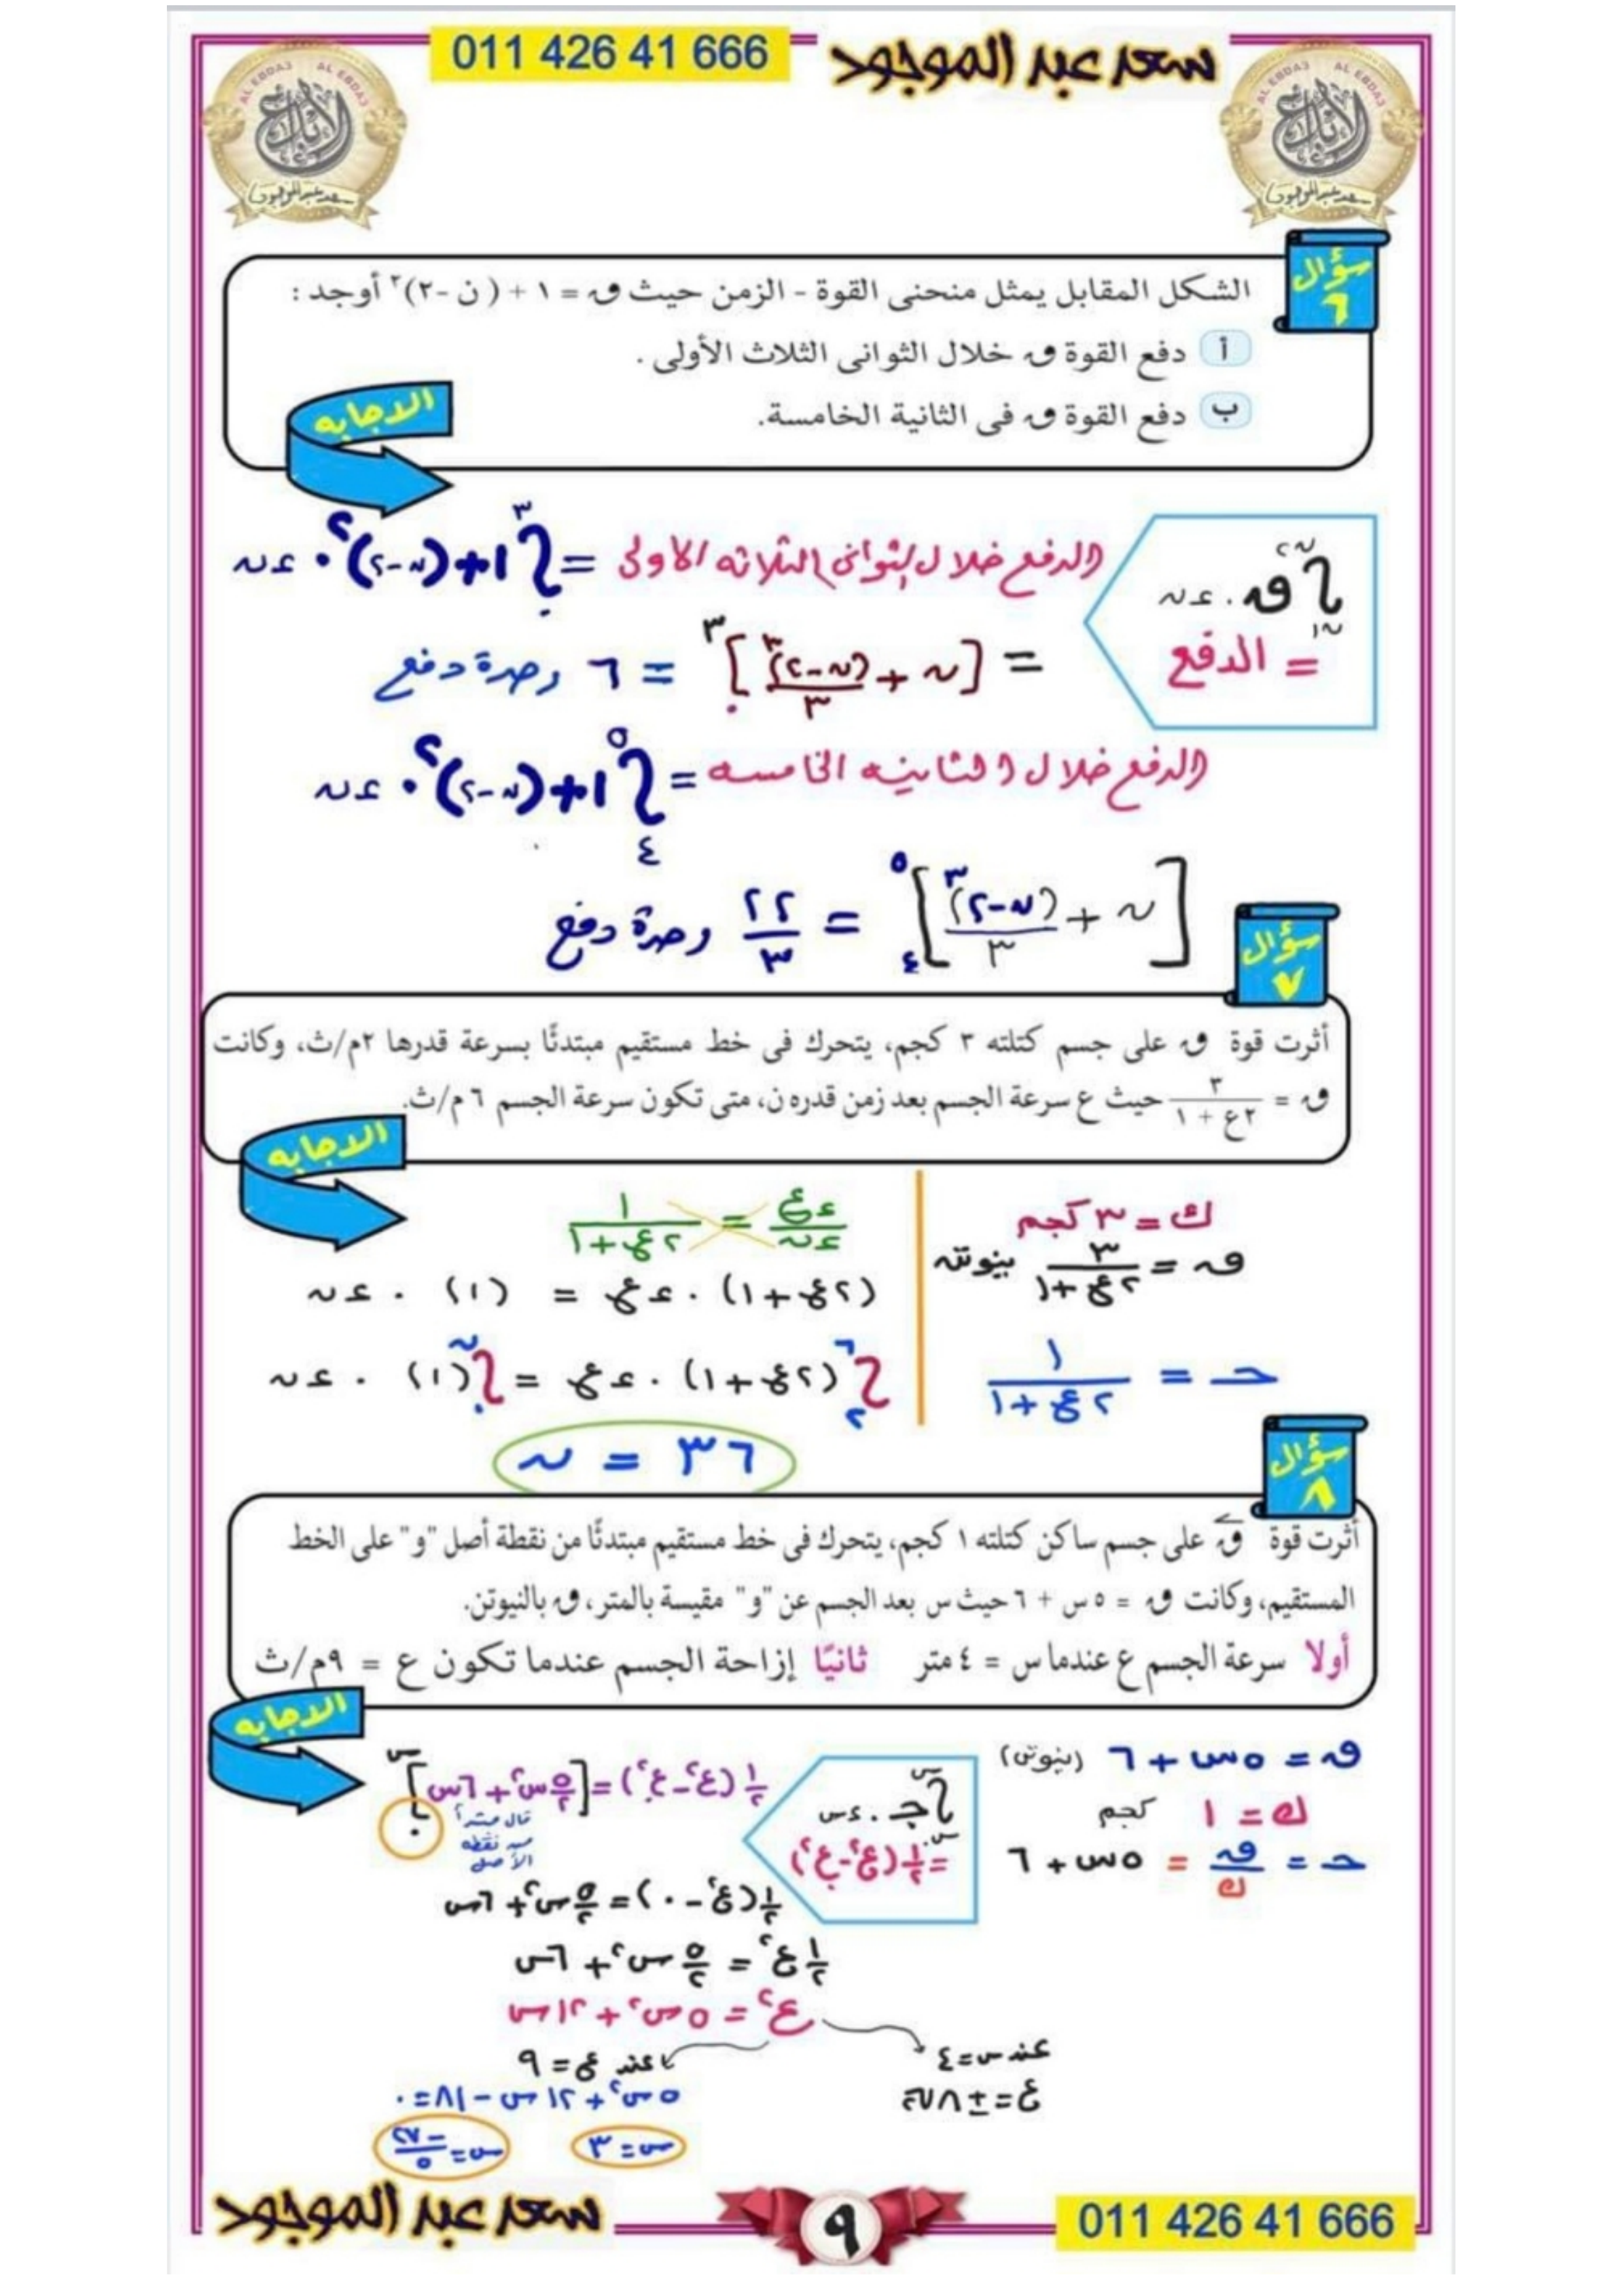 سعد عبد الموجود 011 426 41 666
AL EBDA3 AL EBDA3
الابداع
سعد عبد الموجود
AL EBDA3 AL EBDA3
الابداع
سعد عبد الموجود
سؤال ٦
الشكل المقابل يمثل منحنى القوة - الزمن حيث ق = ١ + (ن -٢)٢ أوجد :
أ دفع القوة ق خلال الثوانى الثلاث الأولى .
ب دفع القوة ق فى الثانية الخامسة.
الاجابه
∫ ق . ءن
= الدفع
الدفع خلال الثوانى الثلاثه الاولى = ∫ ١+(ن-٢)٢ . ءن
= [ن + (ن-٢)٣/٣] = ٦ وحدة دفع
الدفع خلال الثانيه الخامسه = ∫ ١+(ن-٢)٢ . ءن
[ن + (ن-٢)٣/٣] = ٢٢/٣ وحدة دفع
سؤال ٧
أثرت قوة ق على جسم كتلته ٣ كجم، يتحرك فى خط مستقيم مبتدئًا بسرعة قدرها ٢م/ث، وكانت
ق = ٣/(٢ع + ١) حيث ع سرعة الجسم بعد زمن قدره ن، متى تكون سرعة الجسم ٦ م/ث.
الاجابه
ك = ٣ كجم
ق = ٣/(٢ع+١) نيوتن
حـ = ١/(٢ع+١)
ءع/ءن = ١/(٢ع+١)
(٢ع+١) . ءع = (١) . ءن
∫ (٢ع+١) . ءع = ∫ (١) . ءن
ن = ٣٦
سؤال ٨
أثرت قوة ق على جسم ساكن كتلته ١ كجم، يتحرك فى خط مستقيم مبتدئًا من نقطة أصل "و" على الخط
المستقيم، وكانت ق = ٥ س + ٦ حيث س بعد الجسم عن "و" مقيسة بالمتر، ق بالنيوتن.
أولا سرعة الجسم ع عندما س = ٤ متر ثانيًا إزاحة الجسم عندما تكون ع = ٩م/ث
الاجابه
ق = ٥س + ٦ (نيوتن)
ك = ١ كجم
حـ = ق/ك = ٥س + ٦
∫ جـ . ءس
= ١/٢ (ع٢-ع.٢)
١/٢ (ع٢-ع.٢) = [٥/٢ س٢ + ٦س]
قال مبتدأ
من نقطه
الأصل
١/٢ (ع٢ - ٠) = ٥/٢ س٢ + ٦س
١/٢ ع٢ = ٥/٢ س٢ + ٦س
ع٢ = ٥س٢ + ١٢س
عند س=٤
ع = ±
عند ع = ٩
٥س٢ + ١٢س - ٨١ = ٠
س = ٣
س = -٢٧/٥
011 426 41 666
٩
سعد عبد الموجود